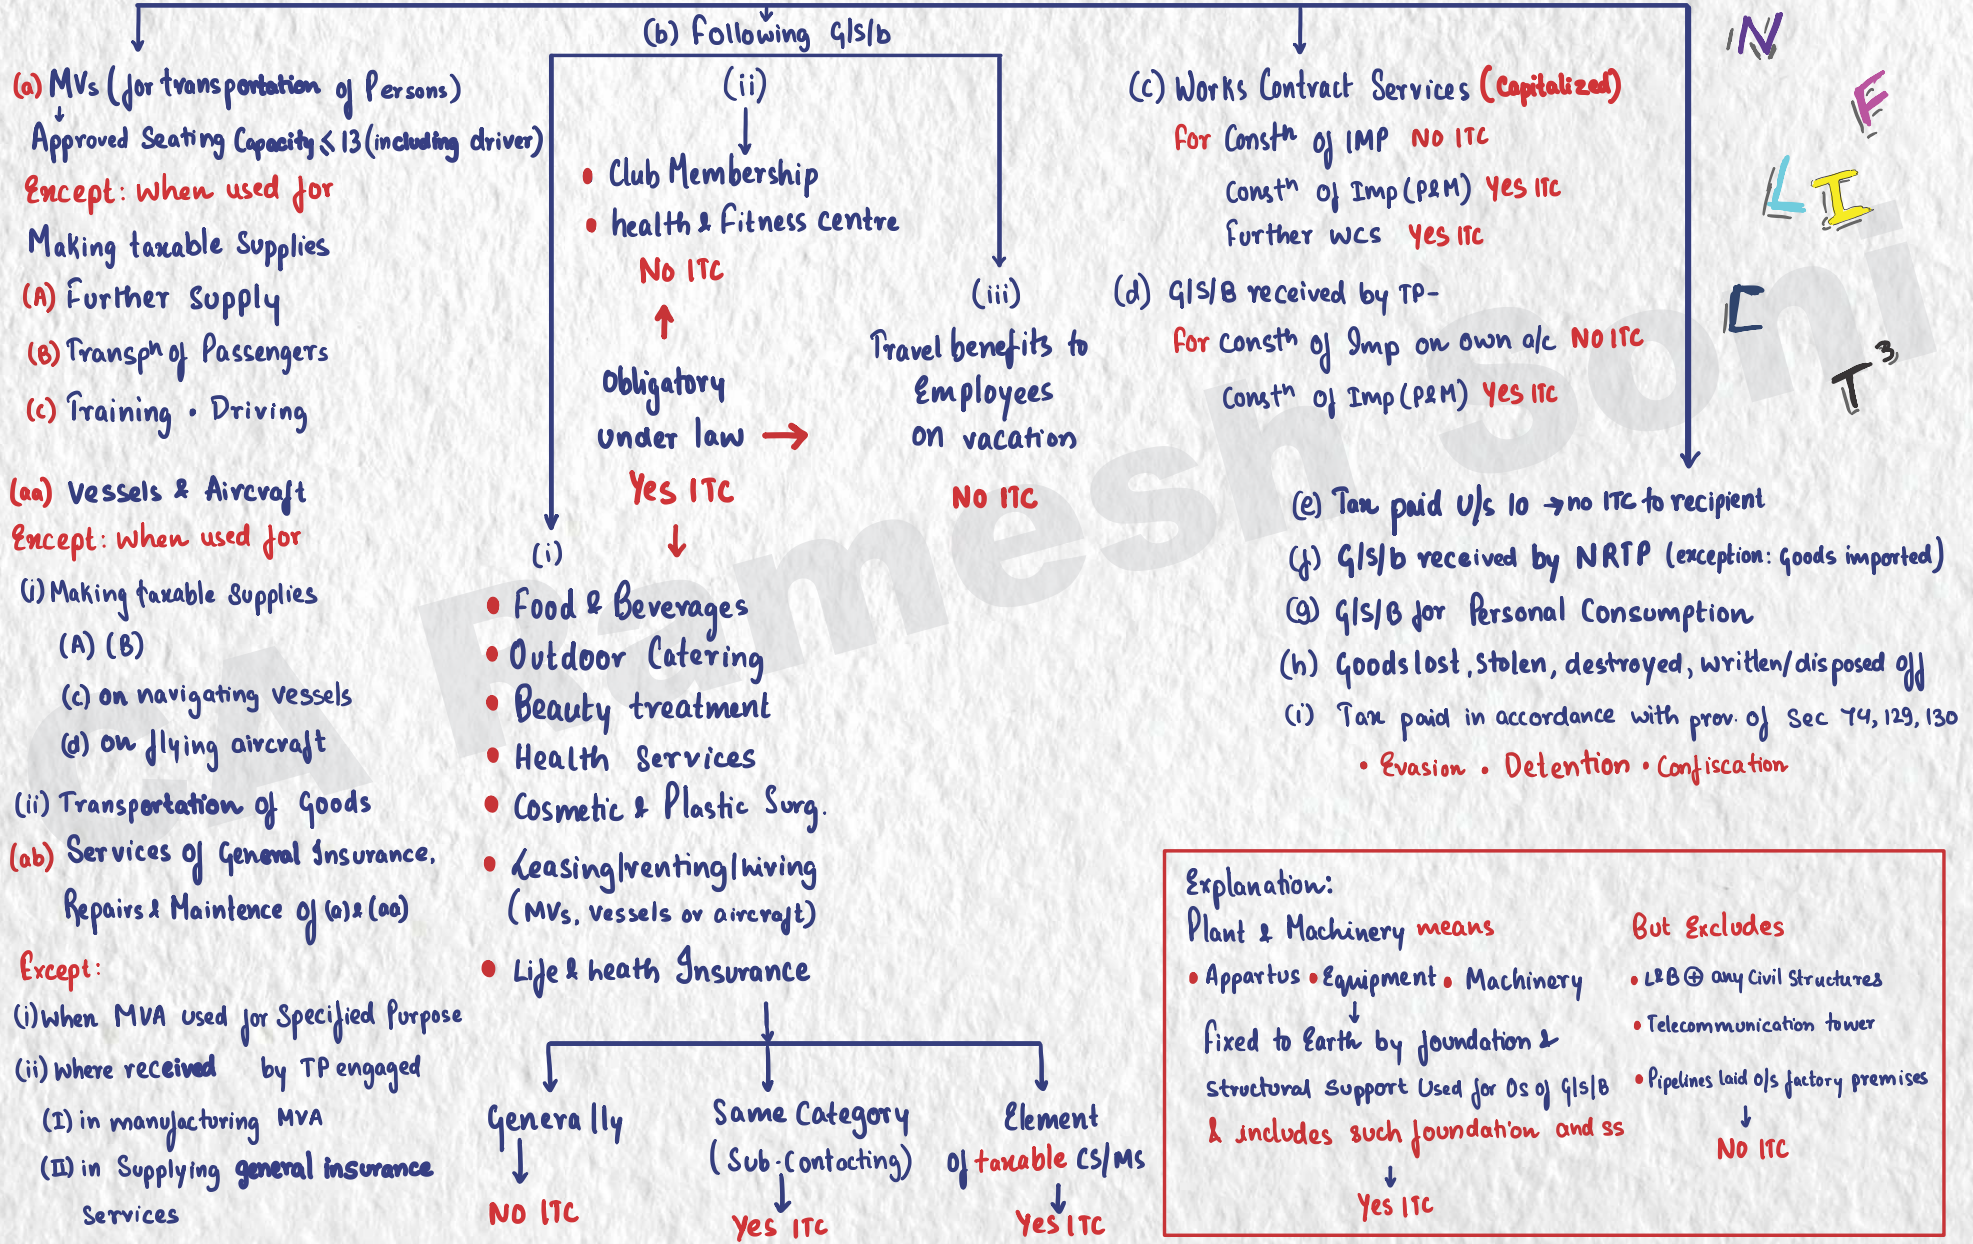 (a) MVs (for transportation of Persons)
Approved Seating Capacity ≤ 13 (including driver)
Except: when used for
Making taxable Supplies
(A) Further Supply
(B) Transpⁿ of Passengers
(C) Training • Driving
(aa) Vessels & Aircraft
Except: when used for
(i) Making taxable Supplies
(A) (B)
(c) on navigating vessels
(d) on flying aircraft
(ii) Transportation of Goods
(ab) Services of General Insurance,
Repairs & Maintence of (a) & (aa)
Except:
(i) When MVA used for Specified Purpose
(ii) Where received by TP engaged
(I) in manufacturing MVA
(II) in Supplying general insurance
Services
(b) Following G/S/b
(ii)
• Club Membership
• health & Fitness centre
No ITC
Obligatory
under law →
Yes ITC
(iii)
Travel benefits to
Employees
on vacation
NO ITC
(i)
• Food & Beverages
• Outdoor Catering
• Beauty treatment
• Health Services
• Cosmetic & Plastic Surg.
• Leasing/renting/hiring
(MVs, vessels or aircraft)
• Life & heath Insurance
Generally
NO ITC
Same Category
(Sub-Contacting)
Yes ITC
Element
of taxable CS/MS
Yes ITC
(c) Works Contract Services (Capitalized)
For Constⁿ of IMP NO ITC
Constⁿ of Imp (P&M) Yes ITC
Further WCS Yes ITC
(d) G/S/B received by TP-
For constⁿ of Imp on own a/c NO ITC
Constⁿ of Imp (P&M) Yes ITC
(e) Tax paid U/s 10 → no ITC to recipient
(f) G/S/b received by NRTP (exception: Goods imported)
(g) G/S/B for Personal Consumption
(h) Goods lost, Stolen, destroyed, written/disposed off
(i) Tax paid in accordance with prov. of Sec 74, 129, 130
• Evasion • Detention • Confiscation
N
F
L I
C
T³
Explanation:
Plant & Machinery means
• Appartus • Equipment • Machinery
Fixed to Earth by foundation &
structural support Used for Os of G/S/B
& includes such foundation and ss
Yes ITC
But Excludes
• L&B ⊕ any Civil Structures
• Telecommunication tower
• Pipelines laid o/s factory premises
No ITC
CA Ramesh Soni